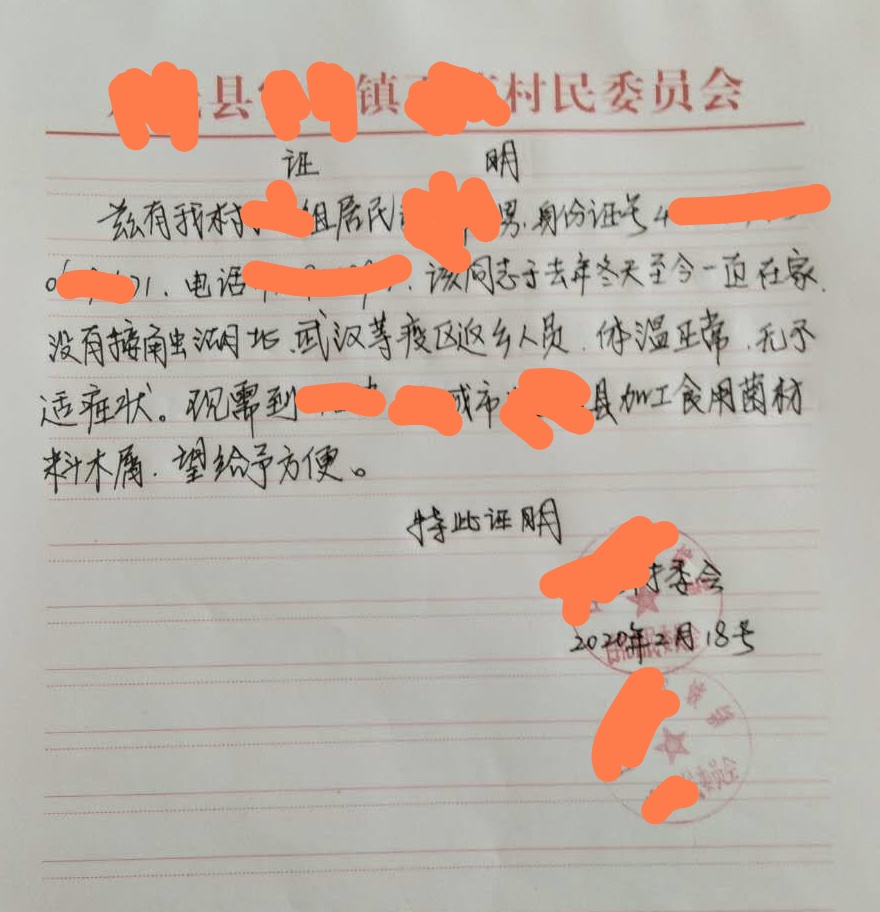 县 镇 村民委员会
证 明
兹有我村 组居民 男,身份证号4
01、电话 、该同志于去年冬天至今一直在家,
没有接触湖北、武汉等疫区返乡人员,体温正常,无不
适症状。现需到 城市 县加工食用菌材
料木屑,望给予方便。
特此证明
村委会
2020年2月18号